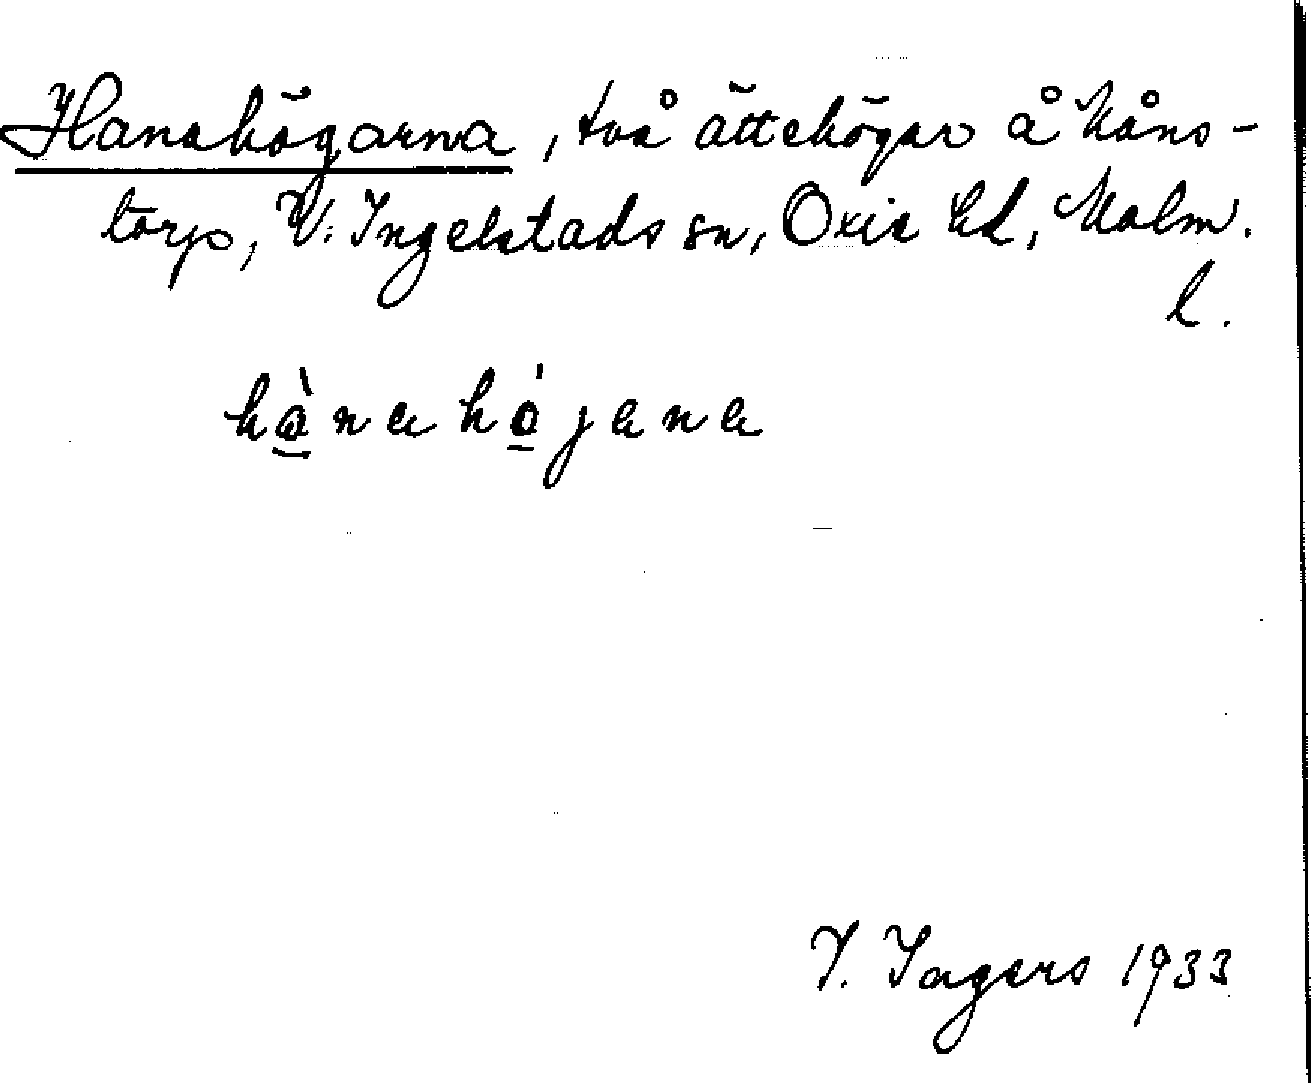 Hanahögarna, två ättehögar å Måns-
torp, V. Ingelstads sn, Oxie hd, Malm.
l.
hànahójana
I. Ingers 1933